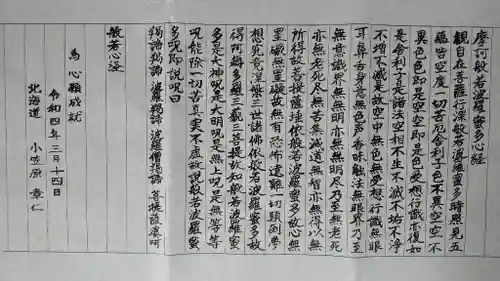 摩訶般若波羅蜜多心経
観自在菩薩行深般若波羅蜜多時照見五
蘊皆空度一切苦厄舎利子色不異空空不
異色色即是空空即是色受想行識亦復如
是舎利子是諸法空相不生不滅不垢不浄
不増不減是故空中無色無受想行識無眼
耳鼻舌身意無色声香味触法無眼界乃至
無意識界無無明亦無無明尽乃至無老死
亦無老死尽無苦集滅道無智亦無得以無
所得故菩提薩埵依般若波羅蜜多故心無
罣礙無罣礙故無有恐怖遠離一切顛倒夢
想究竟涅槃三世諸仏依般若波羅蜜多故
得阿耨多羅三藐三菩提故知般若波羅蜜
多是大神呪是大明呪是無上呪是無等等
呪能除一切苦真実不虚故説般若波羅蜜
多呪即説呪曰
羯諦羯諦 波羅羯諦 波羅僧羯諦 菩提薩婆呵
般若心経
為 心願成就
令和四年三月十四日
北海道 小笠原章仁